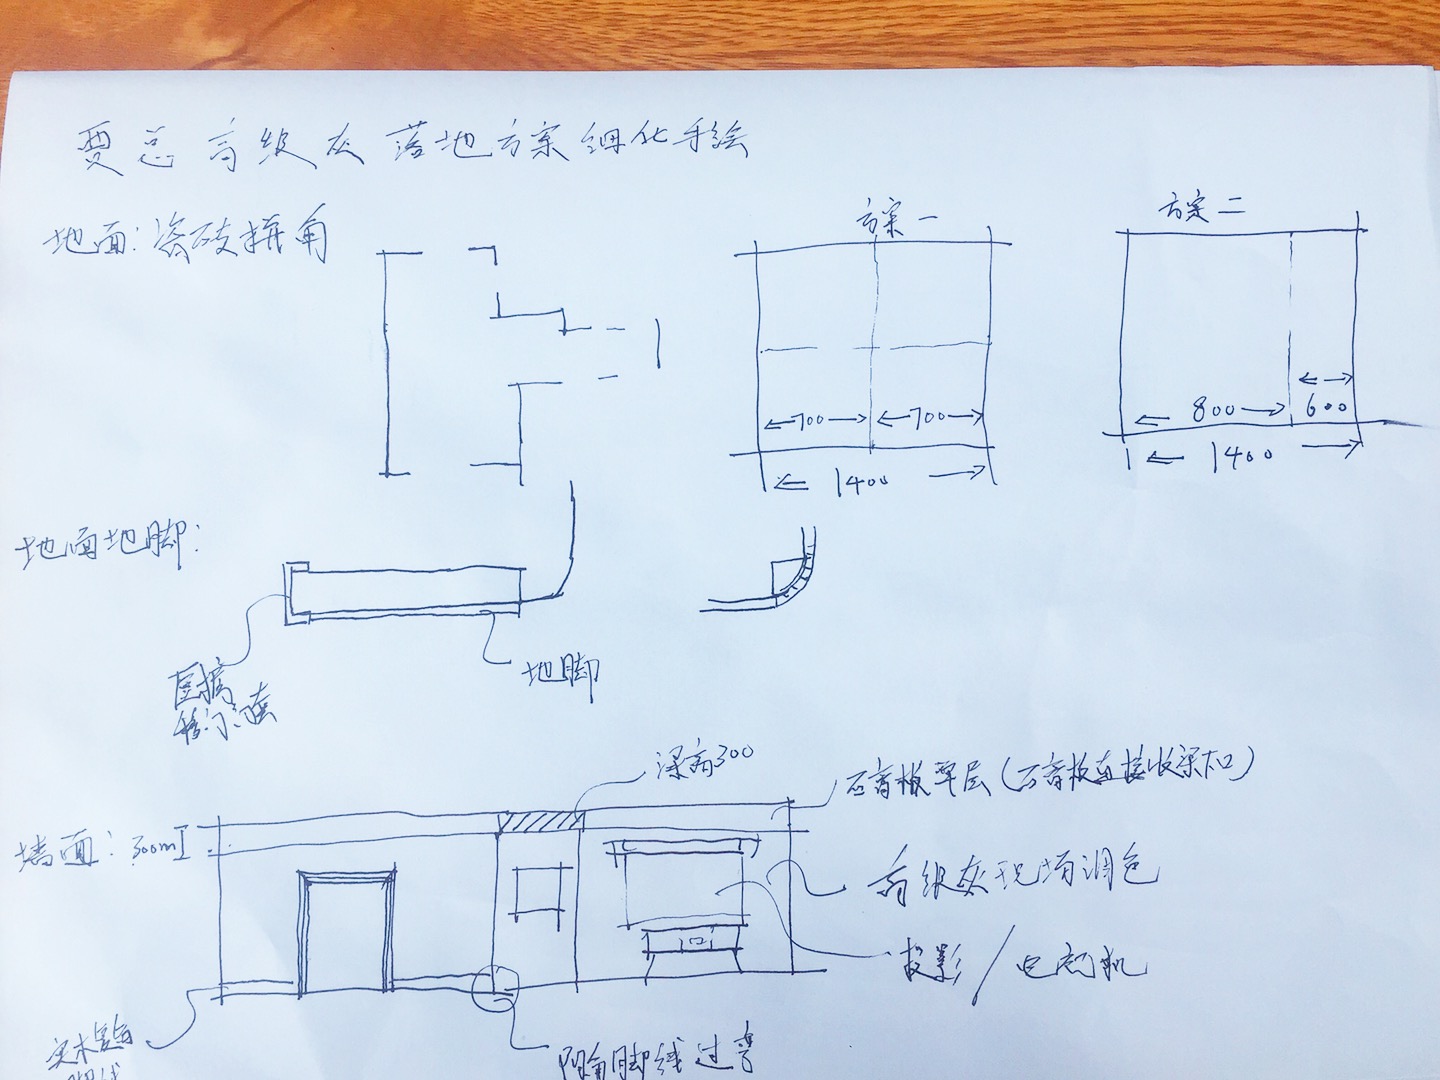 贾总 高级灰 落地方案细化手绘
地面: 瓷砖拼角
方案一
方案二
700
700
1400
800
600
1400
地面地脚:
地脚
梁高300
石膏板单层(石膏板直接收梁口)
墙面: 300m
高级灰现场调色
投影/电视机
实木
脚线
阴角脚线过